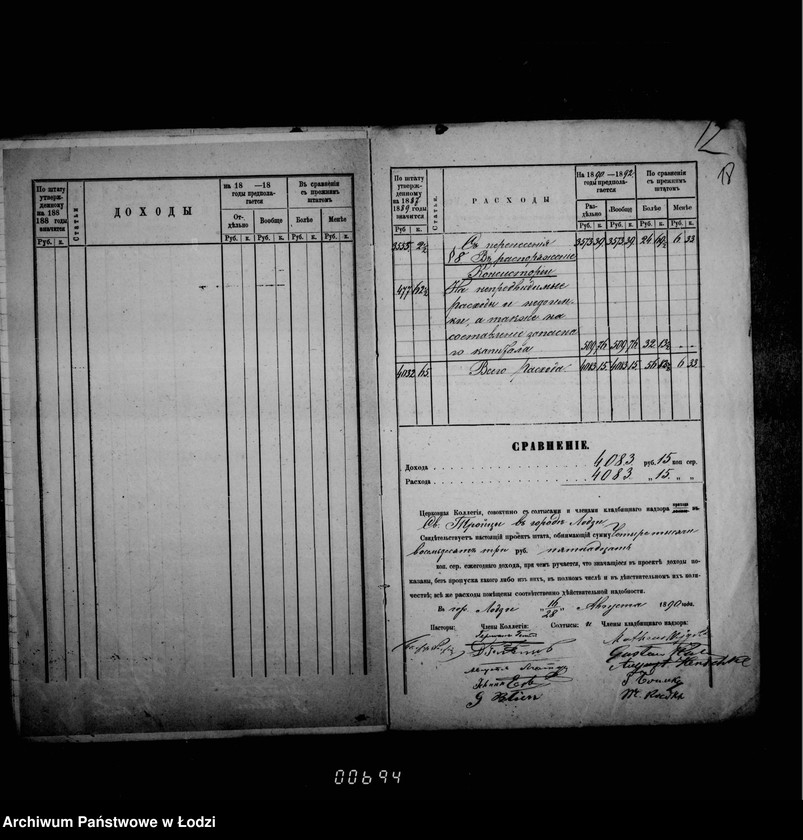 По штату утверж- денному на 188 188 годы значится
Статьи.
ДОХОДЫ
на 18 —18 годы предпола- гается
Въ сравненіи съ прежнимъ штатомъ
От- дѣльно
Вообще
Болѣе
Менѣе
Руб. к. Руб. к. Руб. к. Руб. к. Руб. к.
12
18
По штату утверж- денному на 1887 1889 годы значится
Статьи.
РАСХОДЫ
На 1890—1892 годы предпола- гается
По сравненіи съ прежнимъ штатомъ
Раз- дѣльно
Вообще
Болѣе
Менѣе
Руб. к. Руб. к. Руб. к. Руб. к. Руб. к.
Съ перенесенія 3573 39 3573 39 24 6 33
§ 8 Въ распоряженіе
Консисторіи
477 62½ На непредвидимые
расходы и недоим-
ки, а также на
составленіе запасна-
го капитала 509 76 509 76 32 13½
Всего расхода 4083 15 4083 15 56 6 33
СРАВНЕНІЕ.
Дохода 4083 руб. 15 коп сер.
Расхода 4083 „ 15 „ „
Церковная Коллегія, совмѣстно съ солтысами и членами кладбищнаго надзора въ
Св. Тройцы въ городѣ Лодзи
Свидѣтельствуетъ настоящій проектъ штата, обнимающій сумму Четыре тысячи
восемьдесятъ три руб. пятнадцать
коп. сер. ежегоднаго дохода, при чемъ ручается, что значащіеся въ проектѣ доходы по-
казаны, безъ пропуска такого либо изъ нихъ, въ полномъ числѣ и въ дѣйствительномъ ихъ коли-
чествѣ; всѣ же расходы помѣщены соотвѣтственно дѣйствительной надобности.
Въ гор. Лодзи „16/28 Августа 1890 года.
Пасторы: Члены Коллегіи: Солтысы: и Члены кладбищнаго надзора:
00694
Archiwum Państwowe w Łodzi